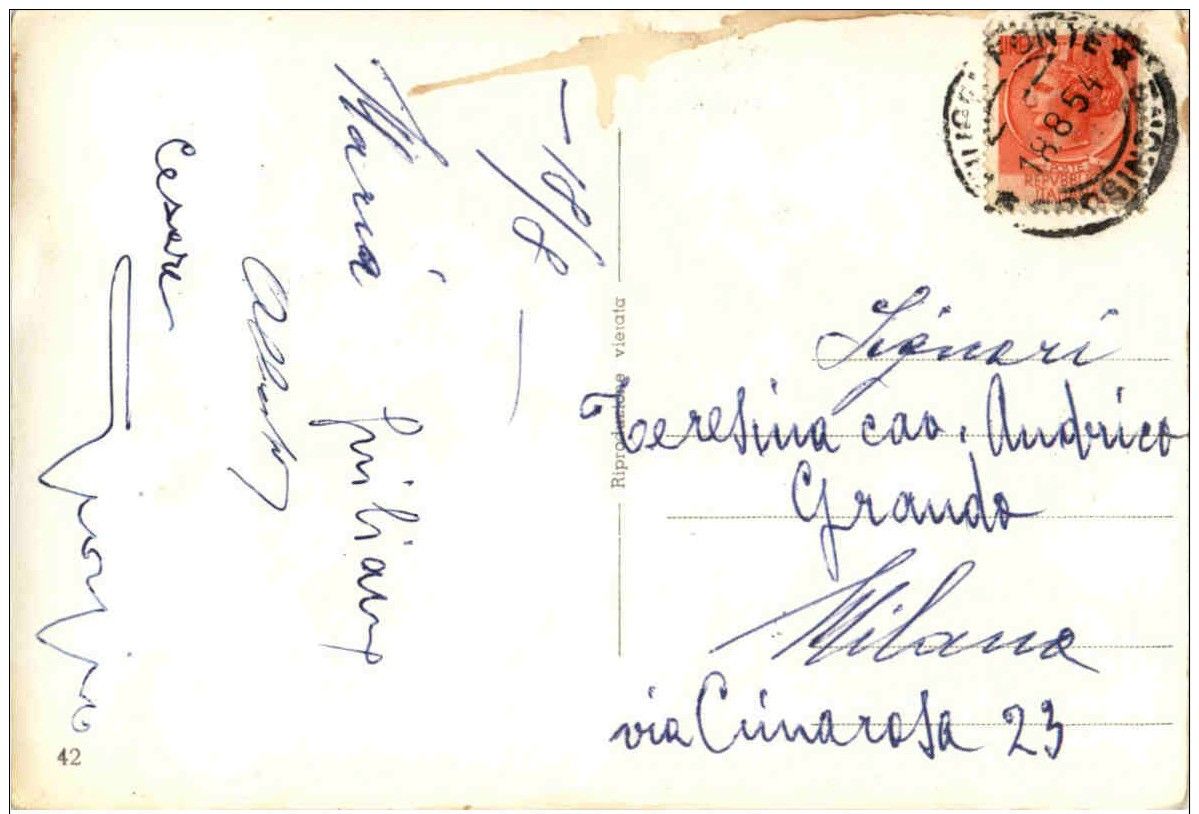 - 18/8 -
Maria
Giuliano
Alberto
Cesare
Giorgio
42
Riproduzione vietata
18 8 54
POSTE
REPUBBLICA
ITALIANA
Signori
Teresina cav. Andrico
Grando
Milano
via Cimarosa 23